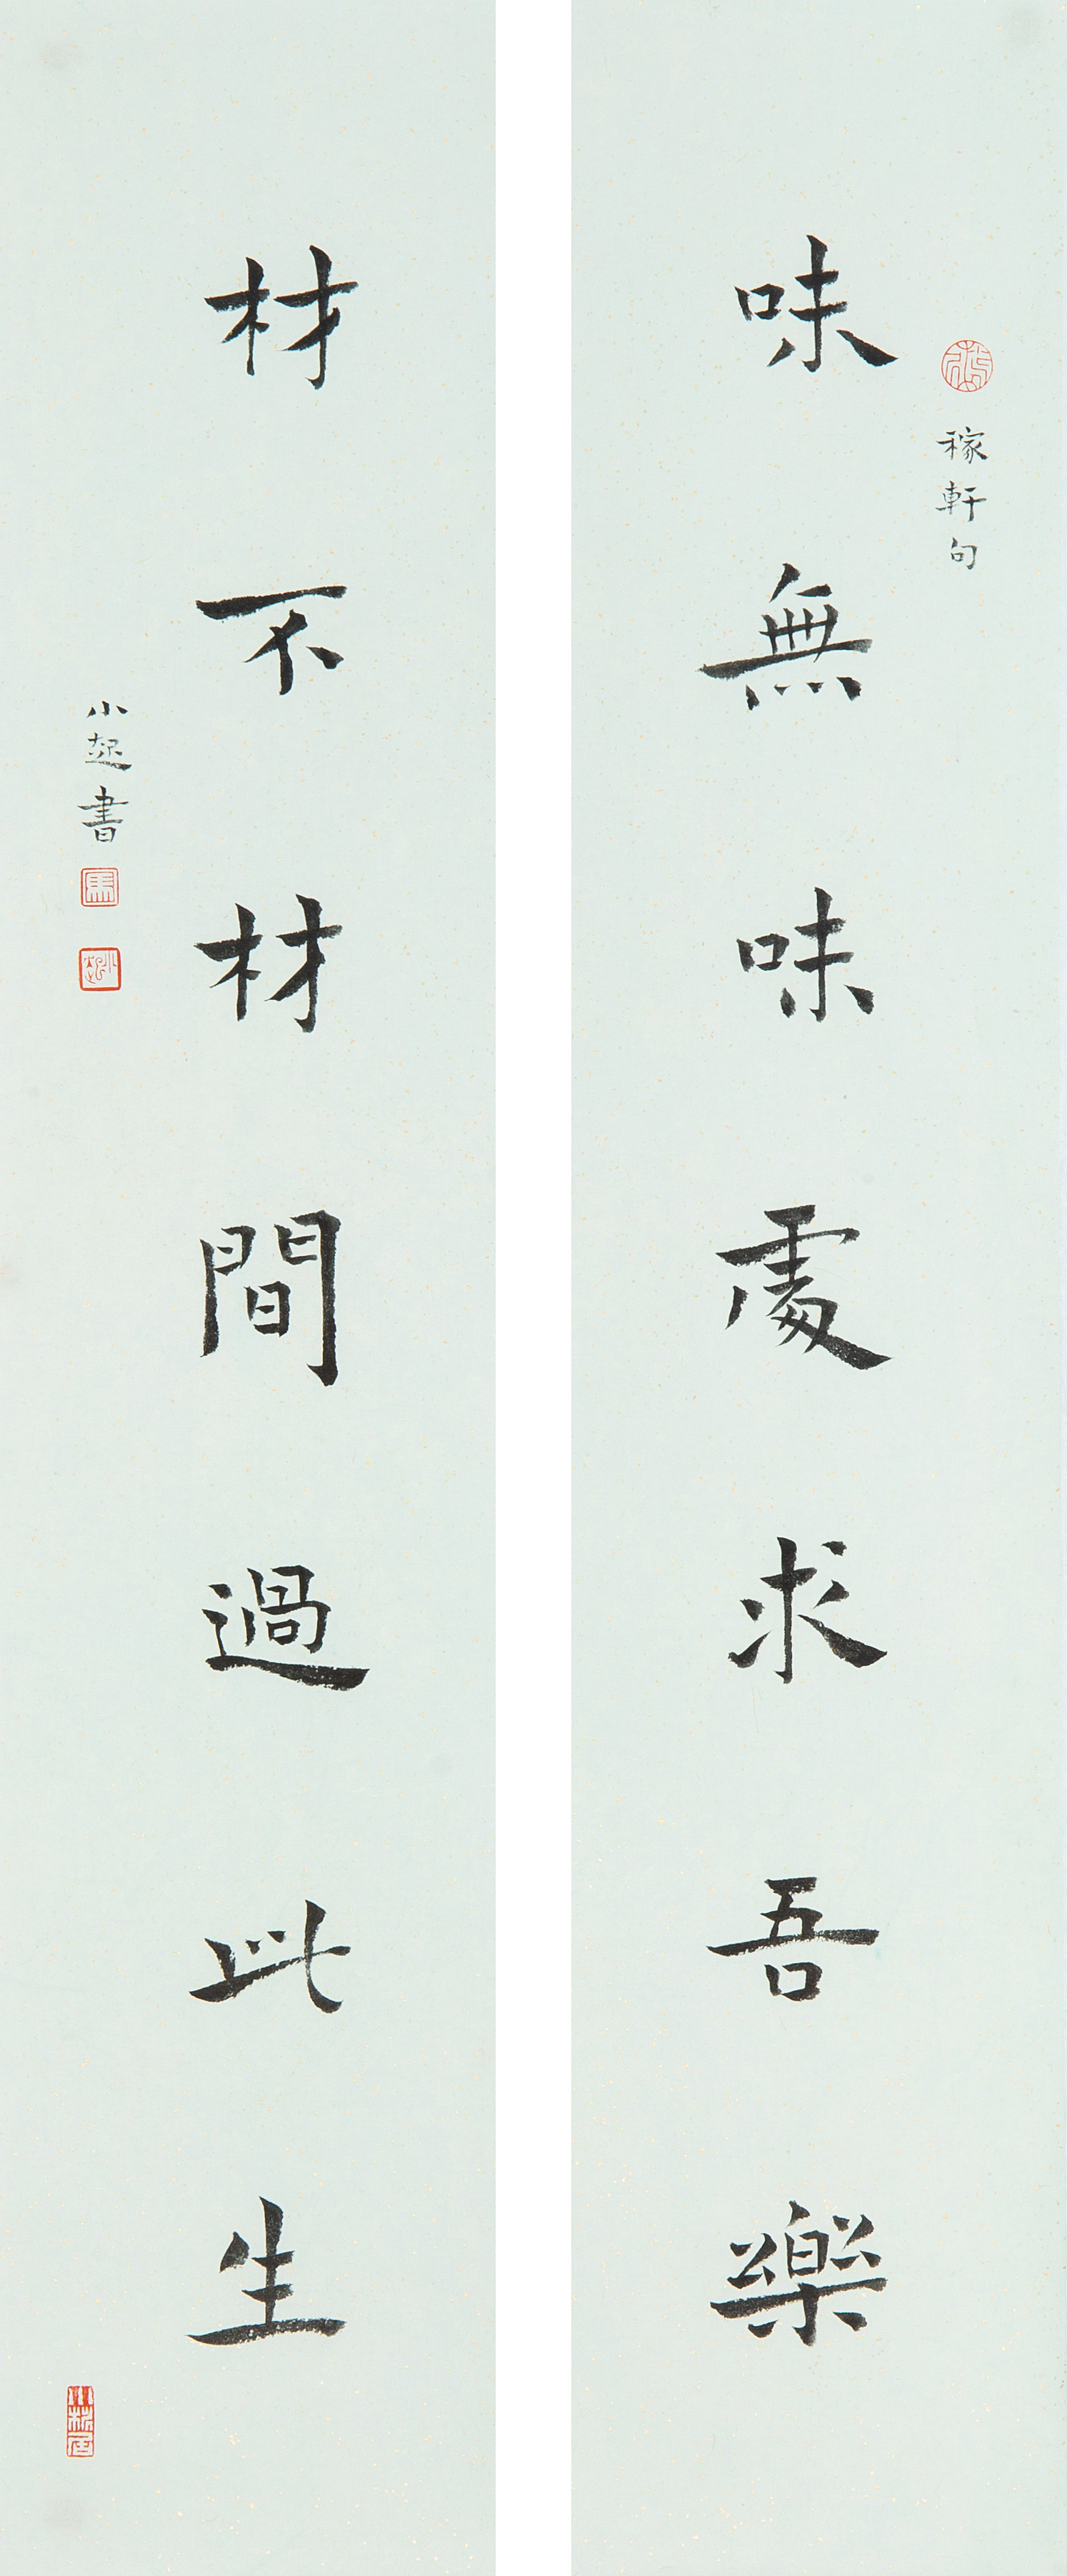 稼軒句
味無味處求吾樂
材不材間過此生
小起書